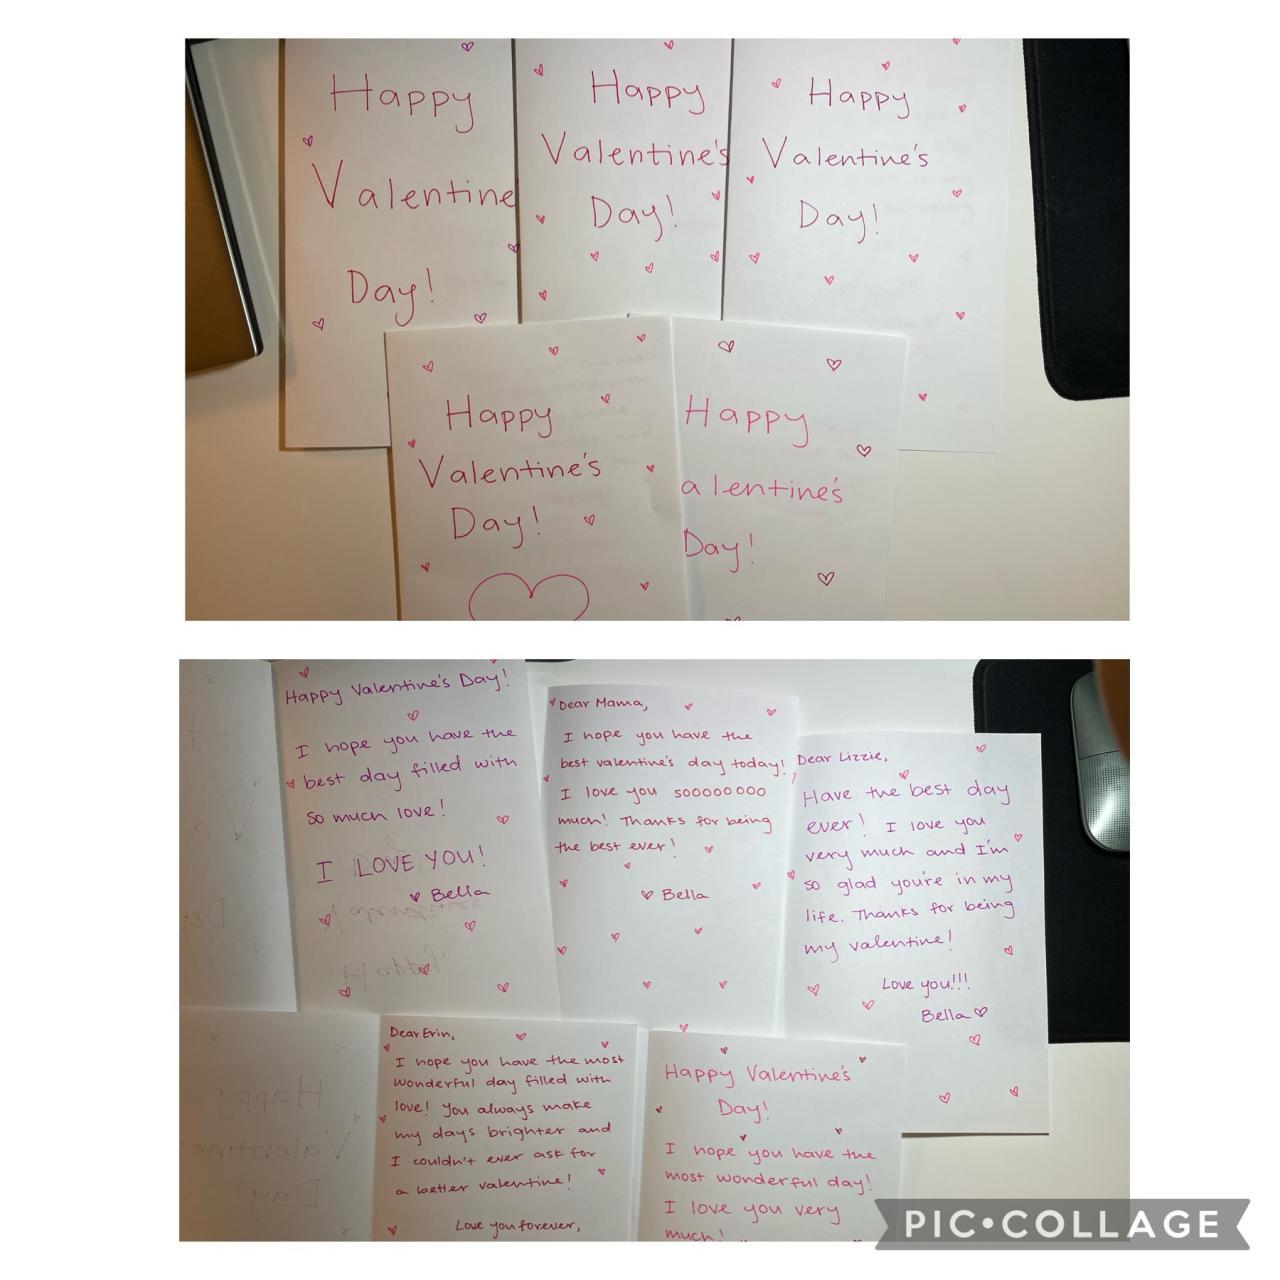 Happy
Valentine
Day!
Happy
Valentine's
Day!
Happy
Valentine's
Day!
Happy
Valentine's
Day!
Happy
alentine's
Day!
Happy Valentine's Day!
I hope you have the
best day filled with
so much love!
I LOVE YOU!
Bella
Dear Mama,
I hope you have the
best valentine's day today!
I love you soooooooo
much! Thanks for being
the best ever!
Bella
Dear Lizzie,
Have the best day
ever! I love you
very much and I'm
so glad you're in my
life. Thanks for being
my valentine!
Love you!!!
Bella
Dear Erin,
I hope you have the most
wonderful day filled with
love! You always make
my days brighter and
I couldn't ever ask for
a better valentine!
Love you forever,
Happy Valentine's
Day!
I hope you have the
most wonderful day!
I love you very
much!
Happy
Valentine's
Day!
PIC•COLLAGE